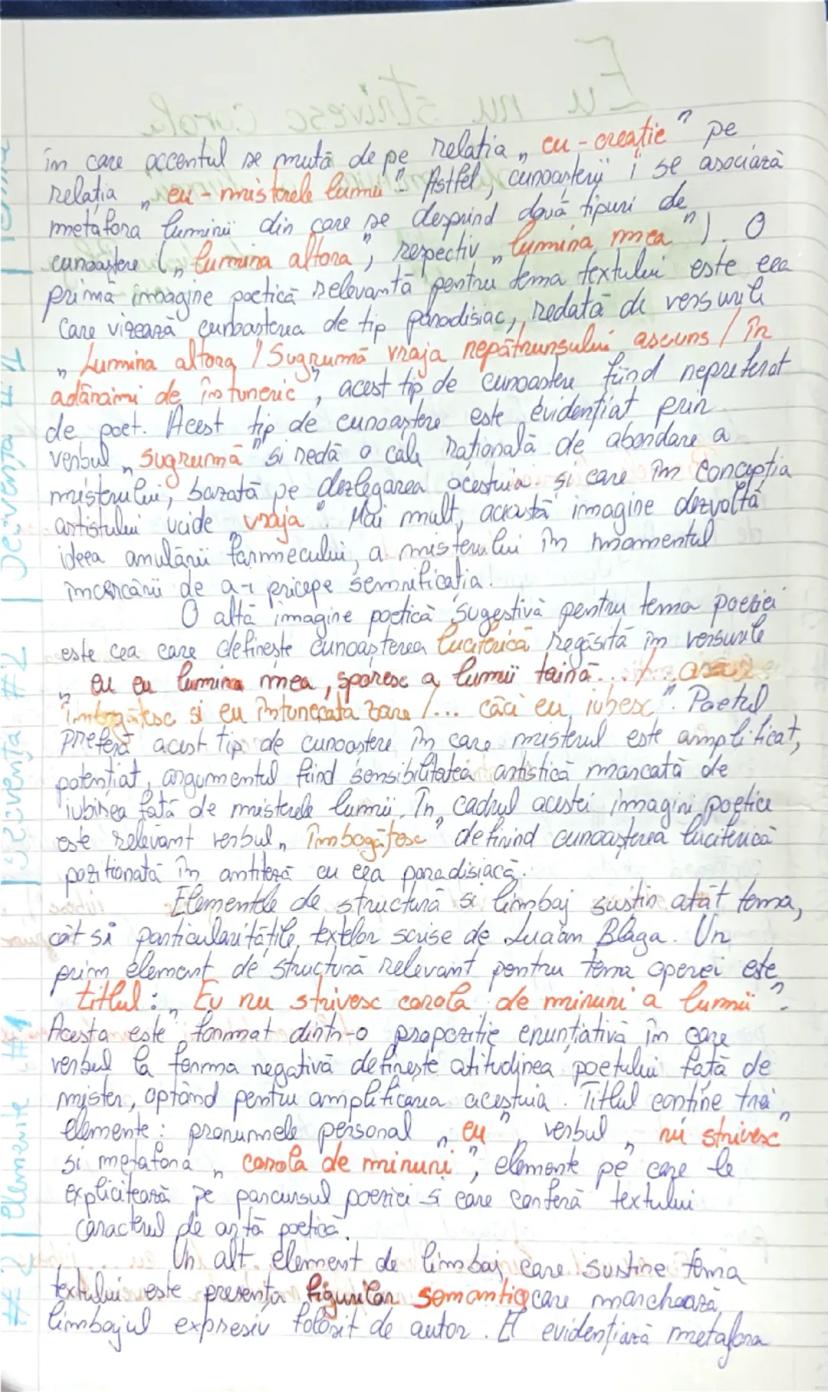 Eu nu strivesc corola
în care accentul se mută de pe relația „eu-creație" pe
relația „eu-misterele lumii". Astfel, cunoașterii i se asociază
metafora luminii din care se desprind două tipuri de
cunoaștere („lumina altora", respectiv „lumina mea"). O
primă imagine poetică relevantă pentru tema textului este cea
care vizează cunoașterea de tip paradisiac, redată de versurile
„Lumina altora / Sugrumă vraja nepătrunsului ascuns / în
adâncimi de întuneric", acest tip de cunoaștere fiind nepreferat
de poet. Acest tip de cunoaștere este evidențiat prin
verbul „sugrumă" și redă o cale rațională de abordare a
misterului, bazată pe dezlegarea acestuia și care în concepția
artistului ucide „vraja". Mai mult, această imagine dezvoltă
ideea anulării farmecului, a misterului în momentul
încercării de a-i pricepe semnificația.
O altă imagine poetică sugestivă pentru tema poeziei
este cea care definește cunoașterea luciferică regăsită în versurile
„eu cu lumina mea, sporesc a lumii taină... /
îmbogățesc și eu întunecata zare /... căci eu iubesc". Poetul
preferă acest tip de cunoaștere în care misterul este amplificat,
potențiat, argumentul fiind sensibilitatea artistică marcată de
iubirea față de misterele lumii. În cadrul acestei imagini poetice
este relevant verbul „îmbogățesc" definind cunoașterea luciferică
poziționată în antiteză cu cea paradisiacă.
Elementele de structură și limbaj susțin atât tema,
cât și particularitățile textelor scrise de Lucian Blaga. Un
prim element de structură relevant pentru tema operei este
titlul: „Eu nu strivesc corola de minuni a lumii".
Acesta este format dintr-o propoziție enunțiativă în care
verbul la forma negativă definește atitudinea poetului față de
mister, optând pentru amplificarea acestuia. Titlul conține trei
elemente: pronumele personal „eu", verbul „nu strivesc"
și metafora „corola de minuni", elemente pe care le
explicitează pe parcursul poeziei și care conferă textului
caracterul de artă poetică.
Un alt element de limbaj care susține tema
textului este prezența figurilor semantice care marchează
limbajul expresiv folosit de autor. El evidențiază metafora
Secvența #1
Secvența #2
Elemente #1
#2